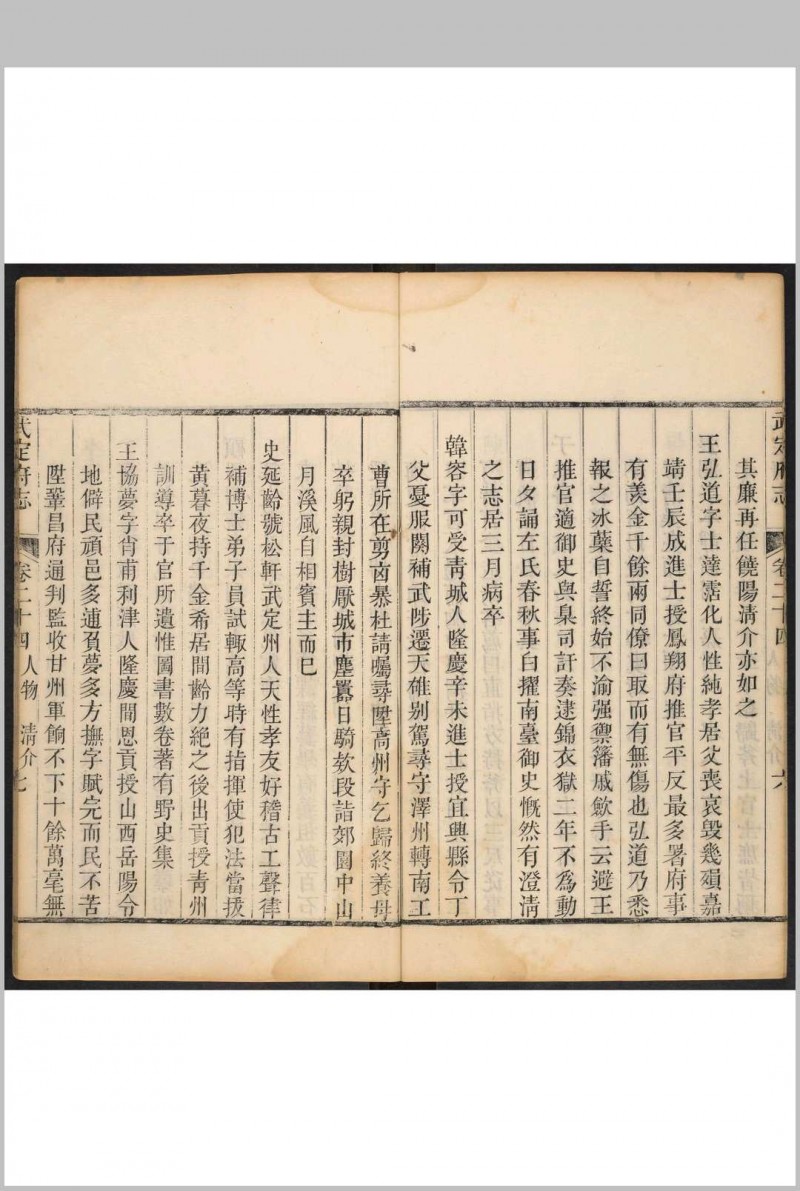 武定府志
卷二十四
六
其廉再任饒陽清介亦如之
王弘道字士達霑化人性純孝居父喪哀毀幾殞嘉
靖壬辰成進士授鳳翔府推官平反最多署府事
有羨金千餘兩同僚曰取而有無傷也弘道乃悉
報之冰蘗自誓終始不渝强禦籓戚歛手云避王
推官適御史與臬司訐奏逮錦衣獄二年不爲動
日夕誦左氏春秋事白擢南臺御史慨然有澄淸
之志居三月病卒
韓容字可受靑城人隆慶辛未進士授宜興縣令丁
父憂服闋補武陟遷天雄别駕尋守澤州轉南工
曹所在剪凾暴杜請囑尋陞高州守乞歸終養母
卒躬親封樹厭城市塵囂日騎欸段詣郊園中山
月溪風自相賓主而巳
史延齡號松軒武定州人天性孝友好稽古工聲律
補博士弟子員試輙高等時有指揮使犯法當拔
黃暮夜持千金希居間齡力絶之後出貢授靑州
訓導卒于官所遺惟圖書數卷著有野史集
王協夢字肖甫利津人隆慶間恩貢授山西岳陽令
地僻民頑邑多逋負夢多方撫字賦完而民不苦
陞鞏昌府通判監收甘州軍餉不下十餘萬毫無
武定府志
卷二十四 人物 淸介
七